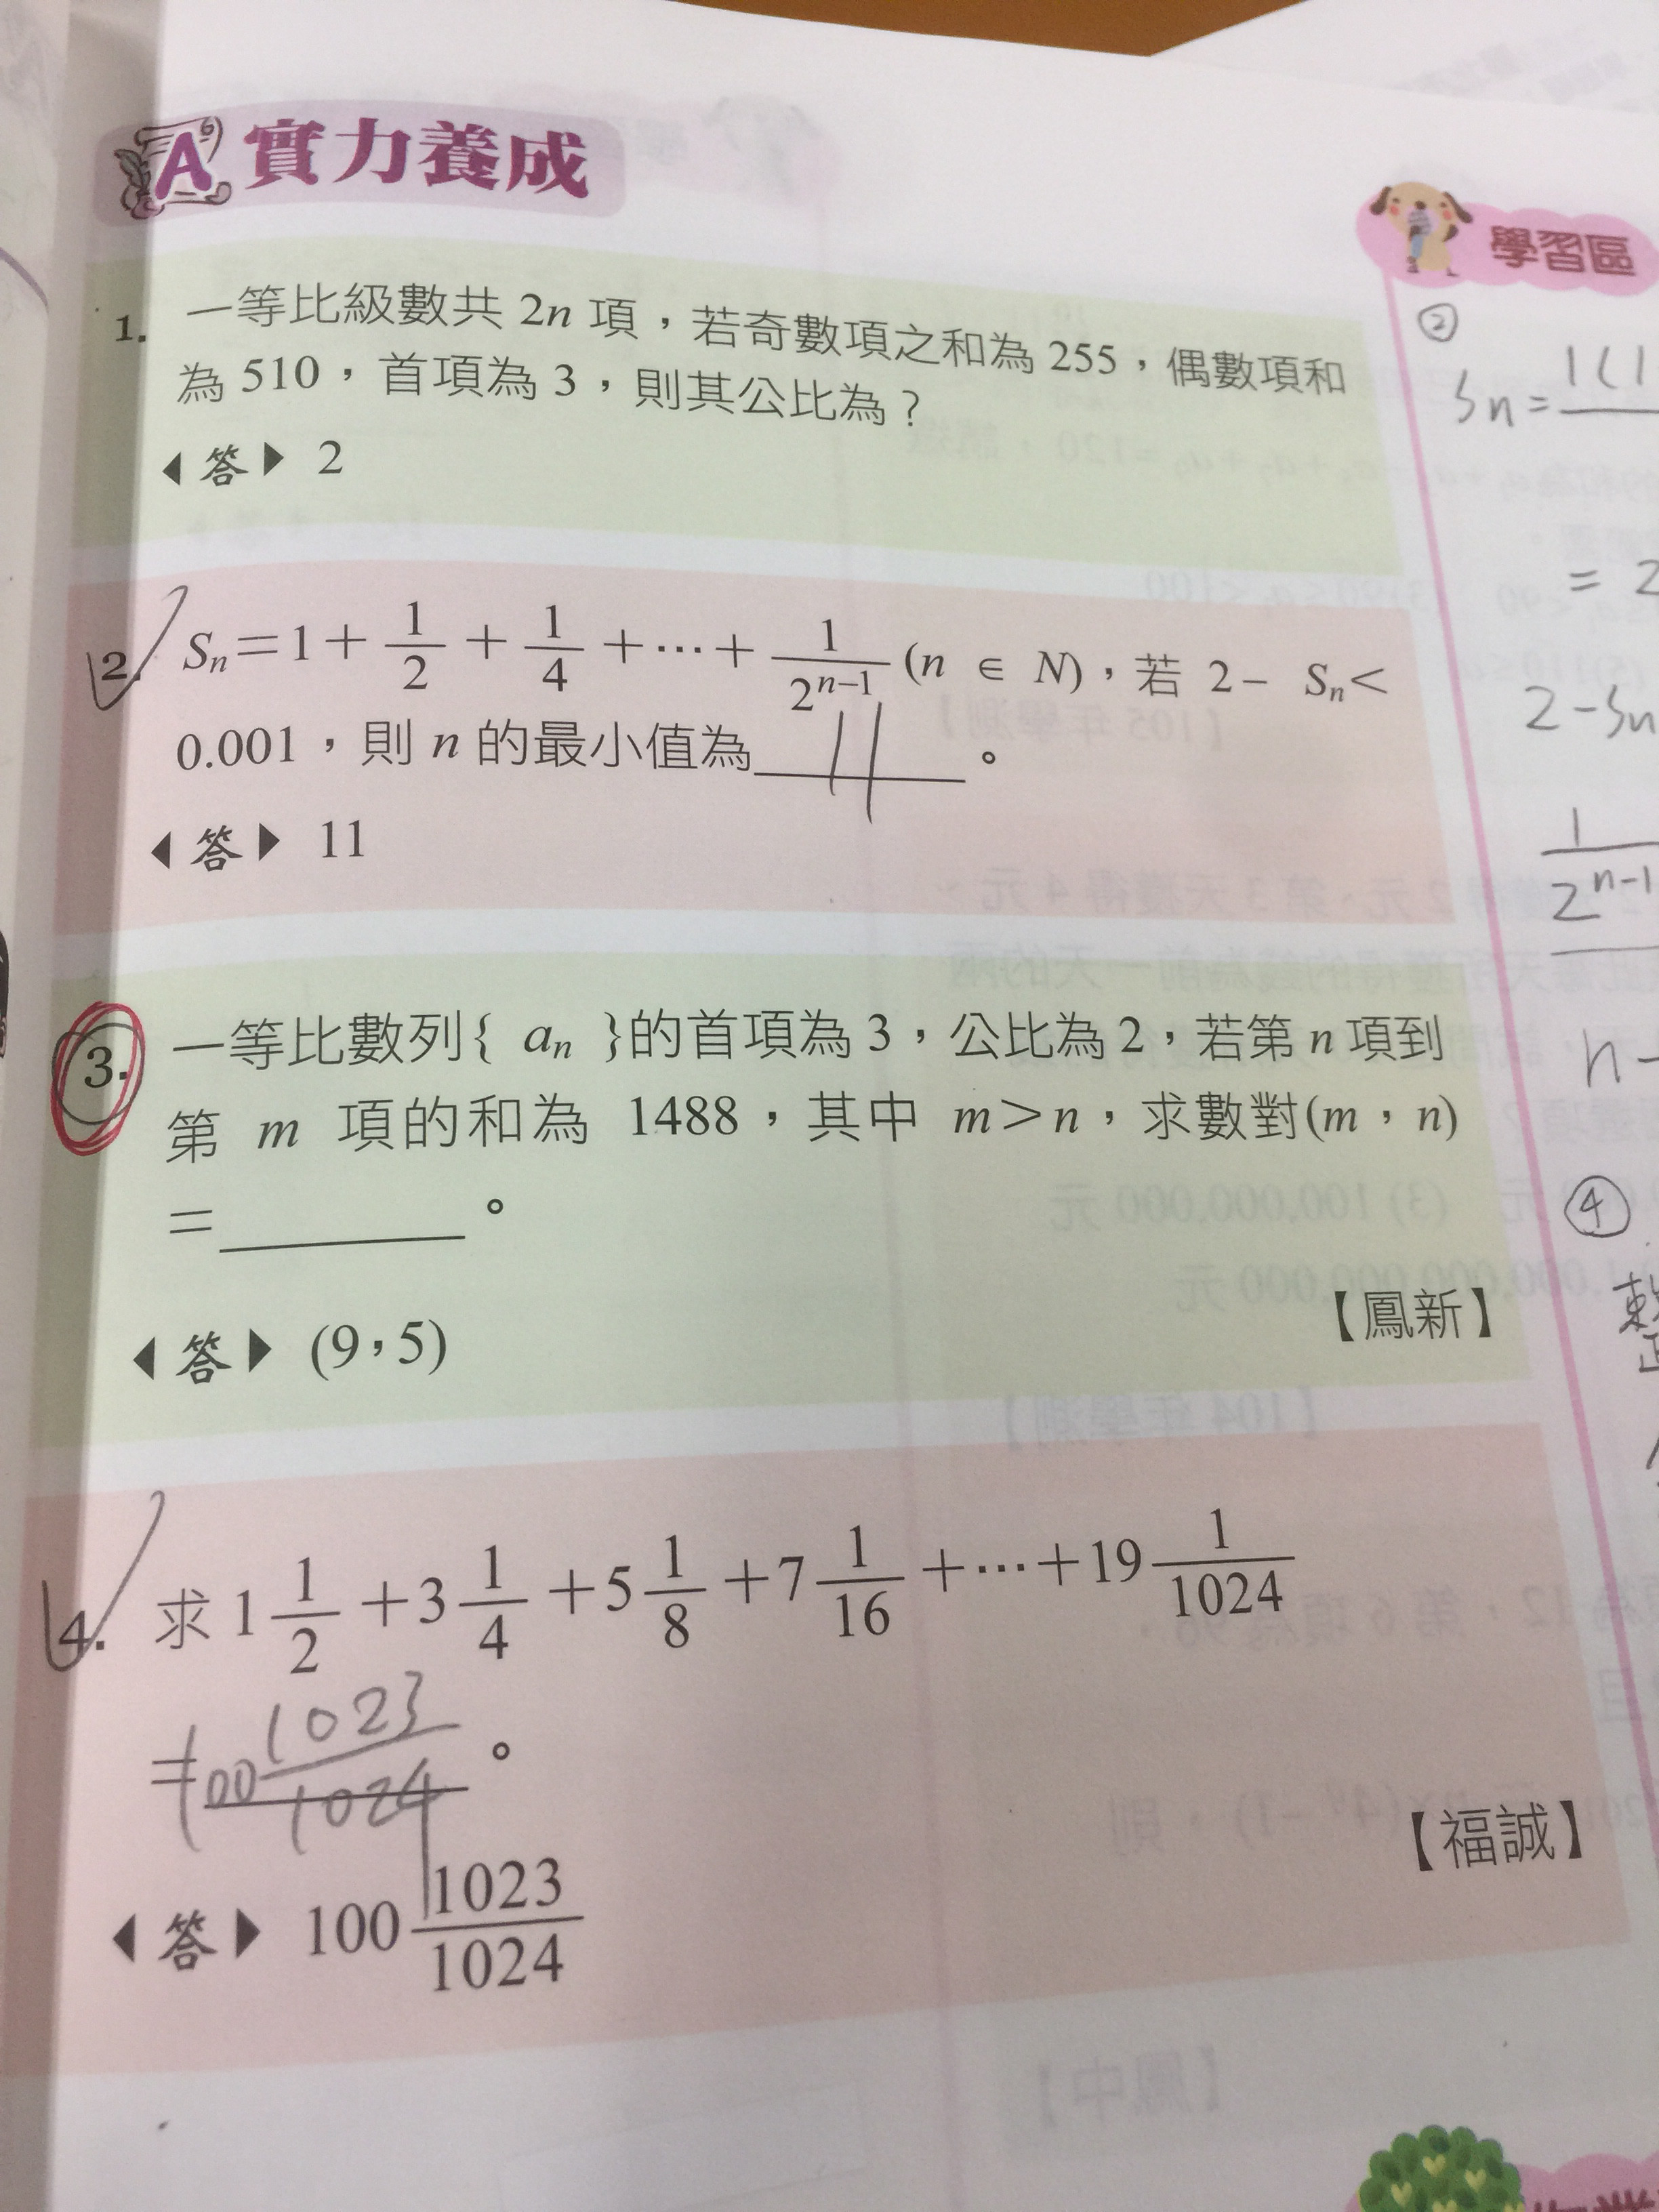 A 實力養成
學習區
1. 一等比級數共 2n 項，若奇數項之和為 255，偶數項和
為 510，首項為 3，則其公比為？
◀答▶ 2
2. Sn＝1＋1/2＋1/4＋⋯＋1/2^(n−1) (n ∈ N)，若 2− Sn＜
0.001，則 n 的最小值為 11 。
◀答▶ 11
3. 一等比數列{ an }的首項為 3，公比為 2，若第 n 項到
第 m 項的和為 1488，其中 m＞n，求數對(m，n)
＝______。
【鳳新】
◀答▶ (9，5)
4. 求 1 1/2＋3 1/4＋5 1/8＋7 1/16＋⋯＋19 1/1024
＝100 1023/1024 。
【福誠】
◀答▶ 100 1023/1024
②
Sn=
= 2
2-Sn
1/2^(n-1)
n-
④